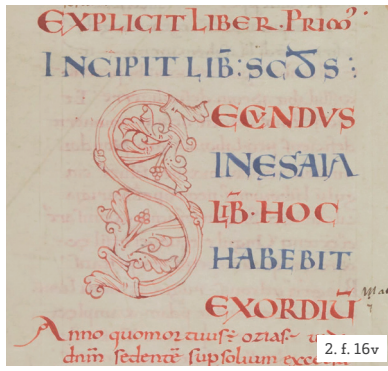 EXPLICIT LIBER · PRIM'
INCIPIT LIB̄ : SCDS :
SECUNDVS
INESAIA
LIB̄ · HOC
HABEBIT
EXORDIŪ
Anno quo mortuus ÷ ozias
dnm̄ sedentē sup solium
2. f. 16v